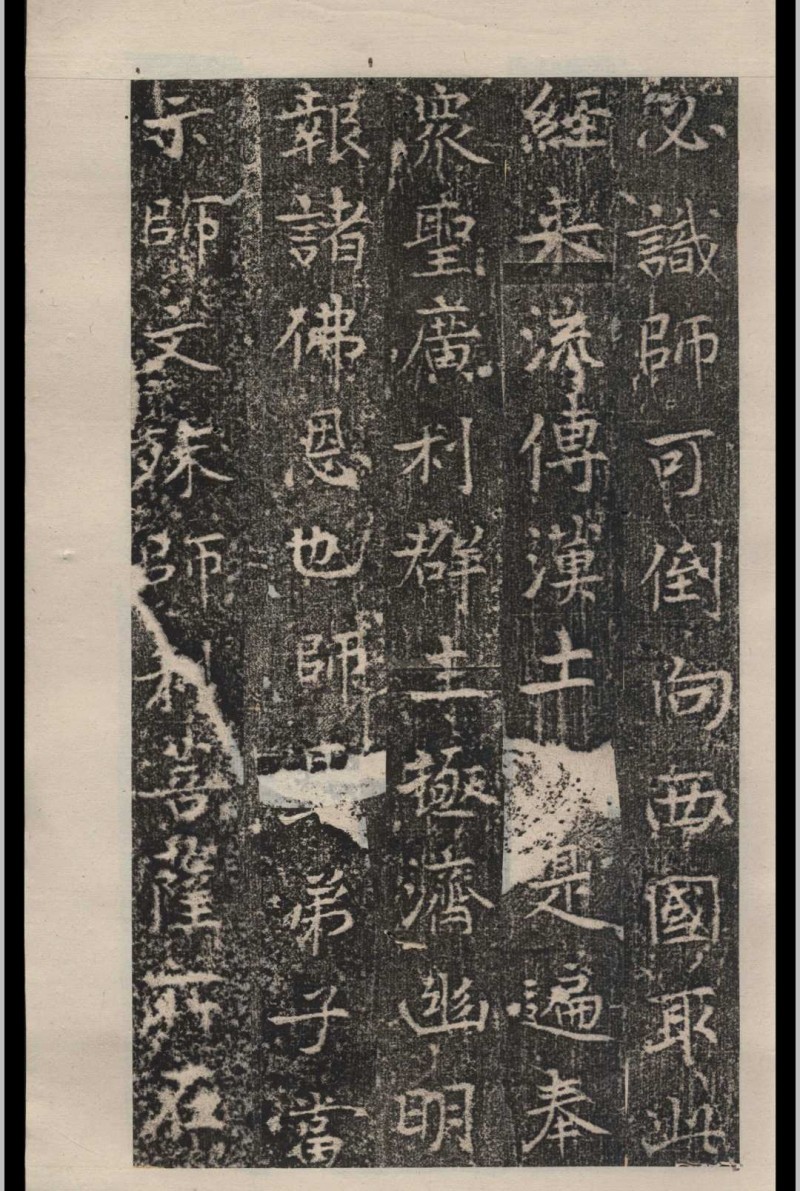 必識師可倒向西國取此
經来流傳漢土是遍奉
眾聖廣利群生極濟幽明
報諸佛恩也師弟子當
示師文殊師利菩薩所在